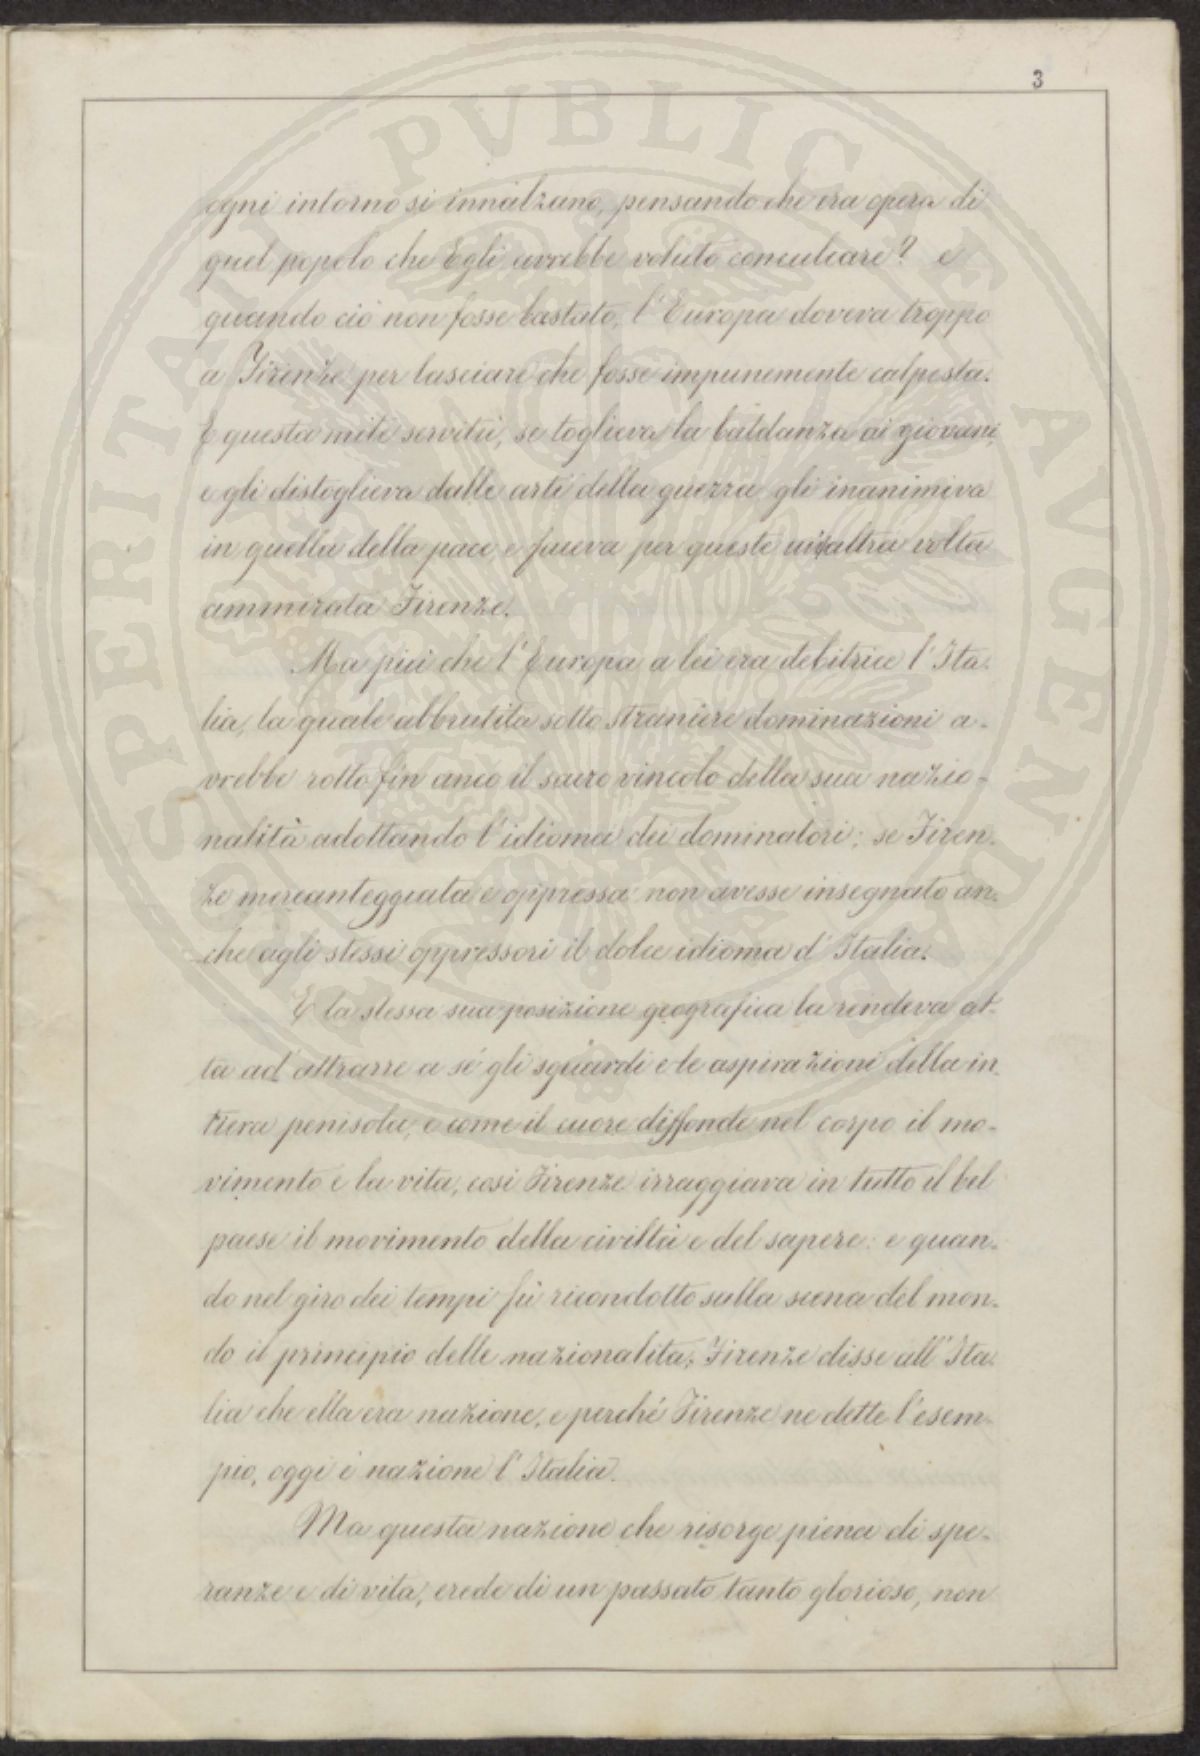 3
ogni intorno si innalzano, pensando che era opera di
quel popolo che Egli avrebbe voluto conculcare? e
quando ciò non fosse bastato, l'Europa doveva troppo
a Firenze per lasciare che fosse impunemente calpesta.
E questa mite servitù, se toglieva la baldanza ai giovani,
e gli distoglieva dalle arti della guerra, gli inanimiva
in quella della pace, e faceva per queste un'altra volta
ammirata Firenze.
Ma più che l'Europa a lei era debitrice l'Ita-
lia, la quale abbrutita sotto straniere dominazioni a-
vrebbe rotto fin anco il sacro vincolo della sua nazio-
nalità adottando l'idioma dei dominatori; se Firen-
ze mercanteggiata e oppressa non avesse insegnato an-
che agli stessi oppressori il dolce idioma d'Italia.
E la stessa sua posizione geografica la rendeva at-
ta ad attrarre a sé gli sguardi e le aspirazioni della in-
tiera penisola, e come il cuore diffonde nel corpo il mo-
vimento e la vita, così Firenze irraggiava in tutto il bel
paese il movimento della civiltà e del sapere: e quan-
do nel giro dei tempi fù ricondotto sulla scena del mon-
do il principio delle nazionalità, Firenze disse all'Ita-
lia che ella era nazione, e perché Firenze ne dette l'esem-
pio, oggi è nazione l'Italia.
Ma questa nazione che risorge piena di spe-
ranze e di vita, erede di un passato tanto glorioso, non
PROSPERITATI PVBLICAE AVGENDAE